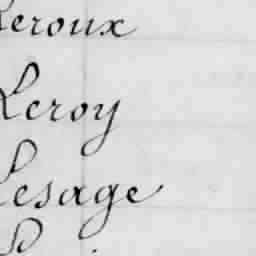 Leroux
Leroy
Lesage